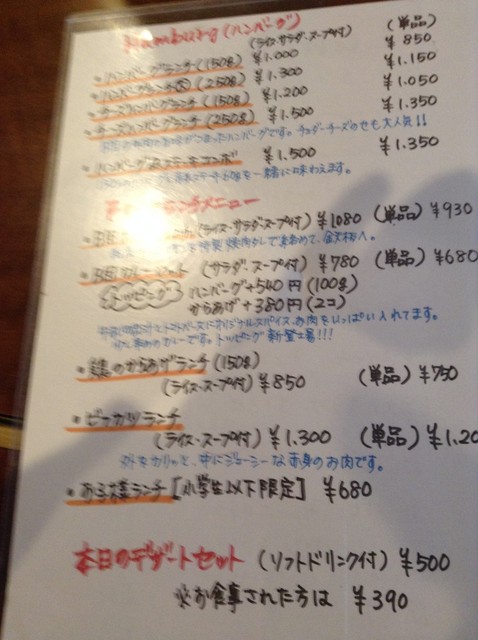 Hamburg (ハンバーグ)
(ライス・サラダ・スープ付) (単品)
・ハンバーグランチ (150g) ¥1.000 ¥850
・ハンバーグランチ (250g) ¥1.300 ¥1.150
・チーズハンバーグランチ (150g) ¥1.200 ¥1.050
・チーズハンバーグランチ (250g) ¥1.500 ¥1.350
ハンバーグです。チェダーチーズのせも大人気!!
・ハンバーグ&ステーキコンボ ¥1.500 ¥1.350
を一緒に味わえます。
ランチメニュー
(ライス・サラダ・スープ付) ¥1080 (単品) ¥930
(サラダ・スープ付) ¥780 (単品) ¥680
トッピング ハンバーグ+540円 (100g)
からあげ+380円 (2コ)
オリジナルスパイス、お肉をいっぱい入れてます。
カレーです。トッピング新登場!!!
・鶏のからあげランチ (150g)
(ライス・スープ付) ¥850 (単品) ¥750
・ビフカツランチ
(ライス・スープ付) ¥1.300 (単品) ¥1.20
外をカリッと、中にジューシーな赤身のお肉です。
・お子様ランチ [小学生以下限定] ¥680
本日のデザートセット (ソフトドリンク付) ¥500
※お食事された方は ¥390